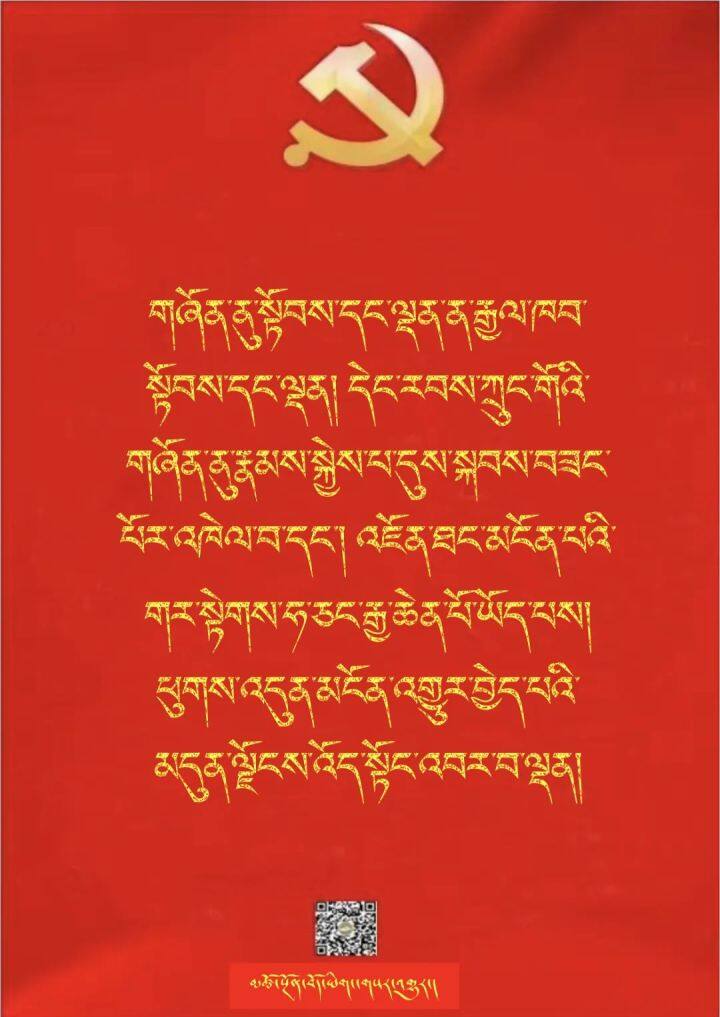 གཞོན་ནུ་སྟོབས་དང་ལྡན་ན་རྒྱལ་ཁབ་
སྟོབས་དང་ལྡན། དེང་རབས་ཀྲུང་གོའི་
གཞོན་ནུ་རྣམས་སྐྱེས་པ་དུས་སྐབས་བཟང་
པོར་འཁེལ་བ་དང་། འཇོན་ཐང་མངོན་པའི་
གར་སྟེགས་ཧ་ཅང་རྒྱ་ཆེན་པོ་ཡོད་པས།
ཕུགས་འདུན་མངོན་འགྱུར་བྱེད་པའི་
མདུན་ལྗོངས་འོད་སྟོང་འབར་བ་ལྡན།